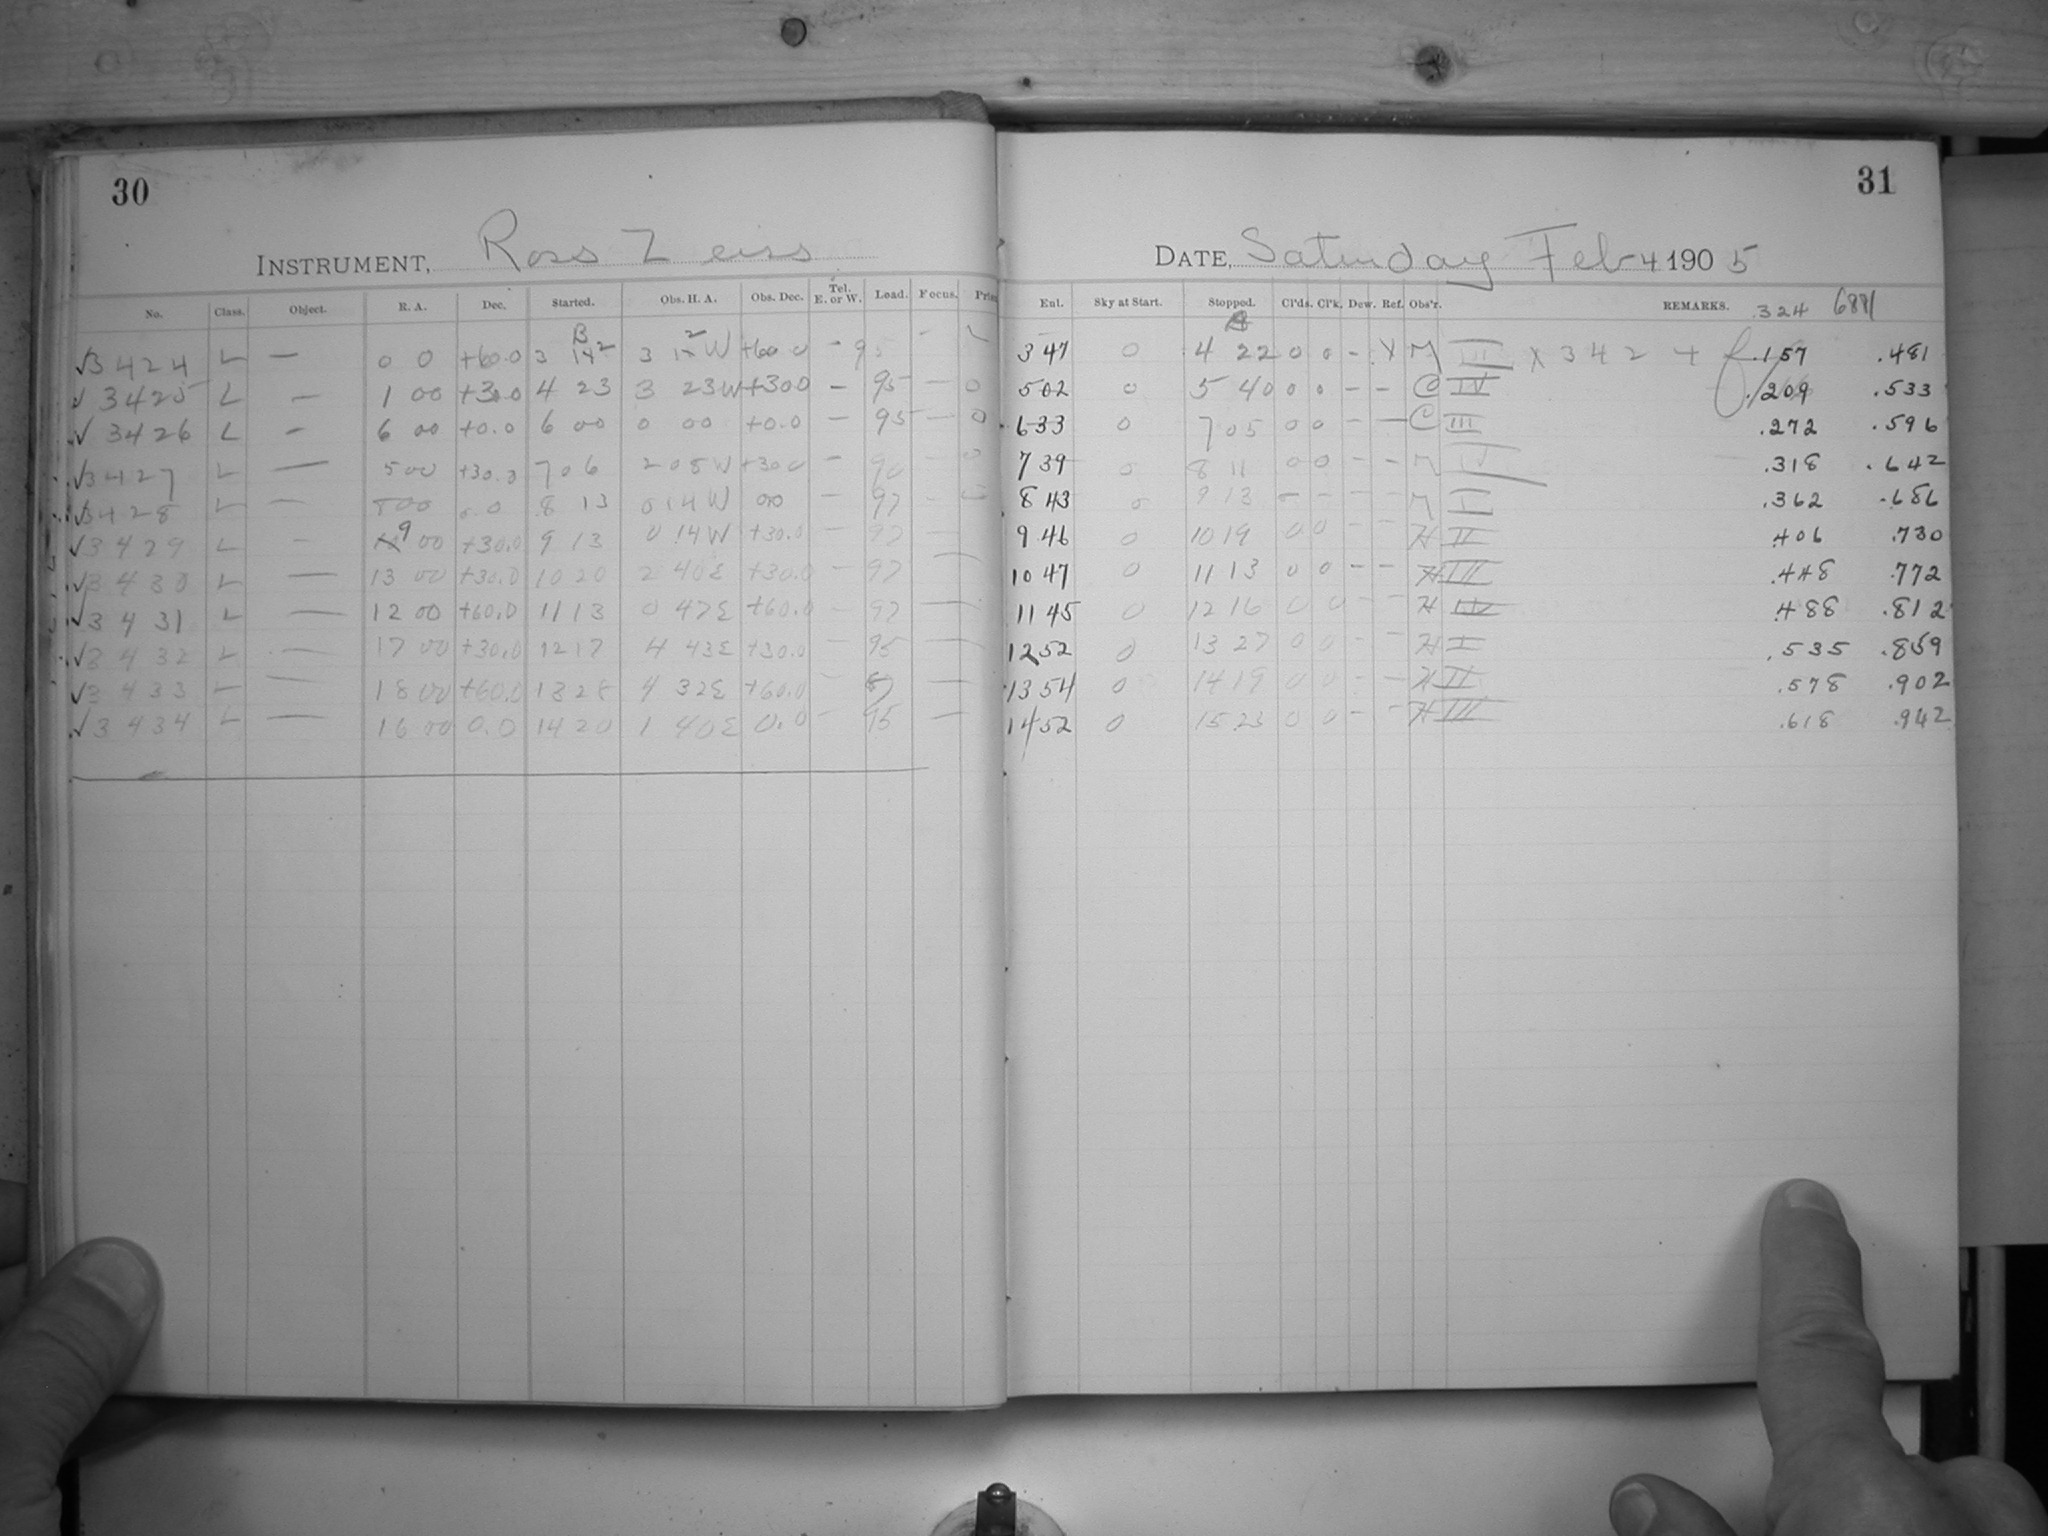 30
INSTRUMENT, Ross Zeiss
No. Class. Object. R. A. Dec. Started. Obs. H. A. Obs. Dec. Tel. E. or W. Load. Focus.
√3424 L — 0 0 +60.0 3 3 W +60 0 – 95 –
√ 3425 L — 1 00 +30.0 4 23 3 23W +300 – 95 – 0
√ 3426 L – 6 00 +0.0 6 00 0 00 +0.0 – 95 – 0
√3427 L — 500 +30.0 706 2 08W +300 – 90 – 0
√3428 L — 800 0.0 8 13 014W 00 – 97 –
√3429 L – 9 00 +30.0 9 13 0 14W +30.0 – 97 —
√3430 L — 13 00 +30.0 1020 2 40E +30.0 – 97 —
√3431 L — 12 00 +60.0 1113 0 47E +60.0 – 97 —
√3432 L — 17 00 +30.0 1217 4 43E +30.0 – 95 —
√3433 L — 18 00 +60.0 1328 4 32E +60.0 – 97 —
√3434 L — 16 00 0.0 1420 1 40E 0.0 – 95 —
31
DATE, Saturday Feb 4 190 5
Ent. Sky at Start. Stopped. Cl'ds. Cl'k. Dew. Ref. Obs'r. REMARKS. .324 6881
347 0 4 22 0 0 – X M III X 342 + .157 .481
502 0 5 40 0 0 – – C IV .209 .533
633 0 705 0 0 – – C III .272 .596
739 0 8 11 0 0 – – M IV .318 .642
843 0 913 – – – – M I .362 .686
946 0 1019 0 0 – – H II .406 .730
1047 0 1113 0 0 – – H III .448 .772
1145 0 1216 0 0 – – H IV .488 .812
1252 0 1327 0 0 – – H I .535 .859
1354 0 1419 0 0 – – H II .578 .902
1452 0 1523 0 0 – – H III .618 .942